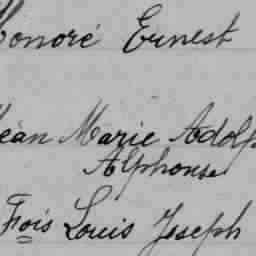 Honoré Ernest
Jean Marie Adolp
Alphonse
Frois Louis Joseph